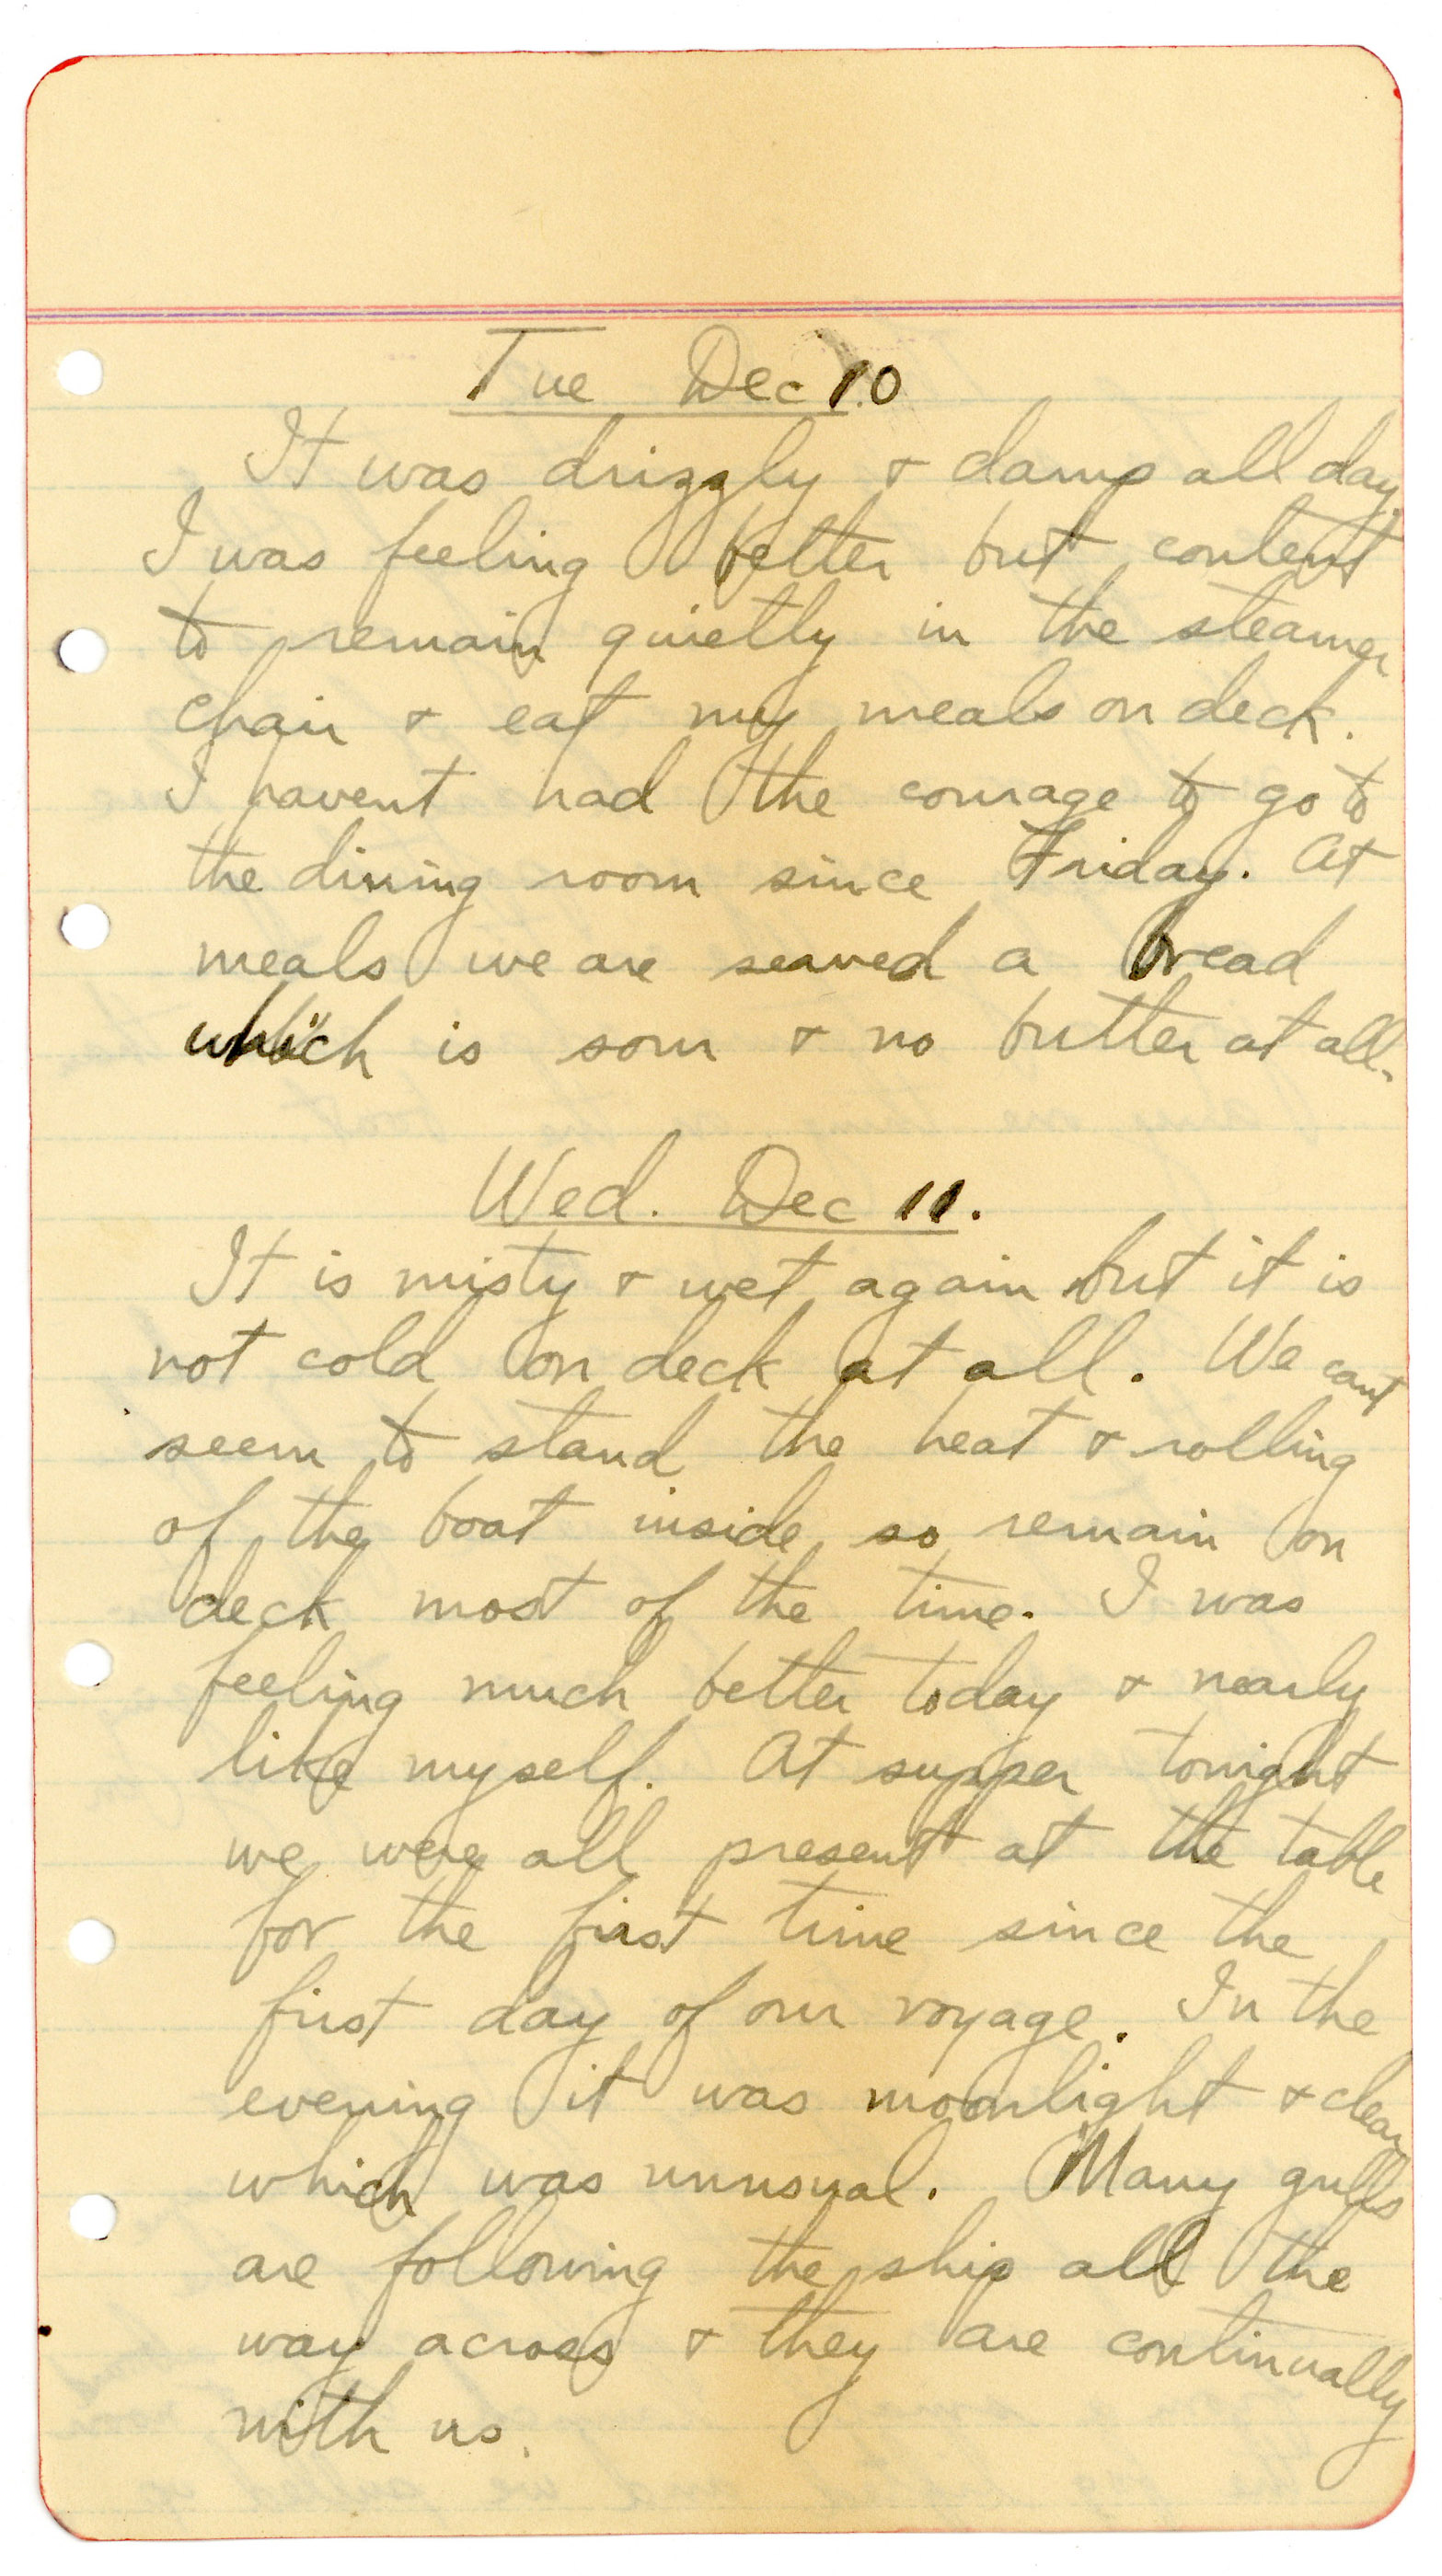 Tue Dec 10
It was drizzly & damp all day.
I was feeling better but content
to remain quietly in the steamer
chair & eat my meals on deck.
I havent had the courage to go to
the dining room since Friday. At
meals we are searved a bread
which is sour & no butter at all.
Wed. Dec 11.
It is misty & wet again but it is
not cold on deck at all. We cant
seem to stand the heat & rolling
of the boat inside so remain on
deck most of the time. I was
feeling much better today & nearly
like myself. At supper tonight
we were all present at the table
for the first time since the
first day of our voyage. In the
evening it was moonlight & clear
which was unusual. Many gulls
are following the ship all the
way across & they are continually
with us.